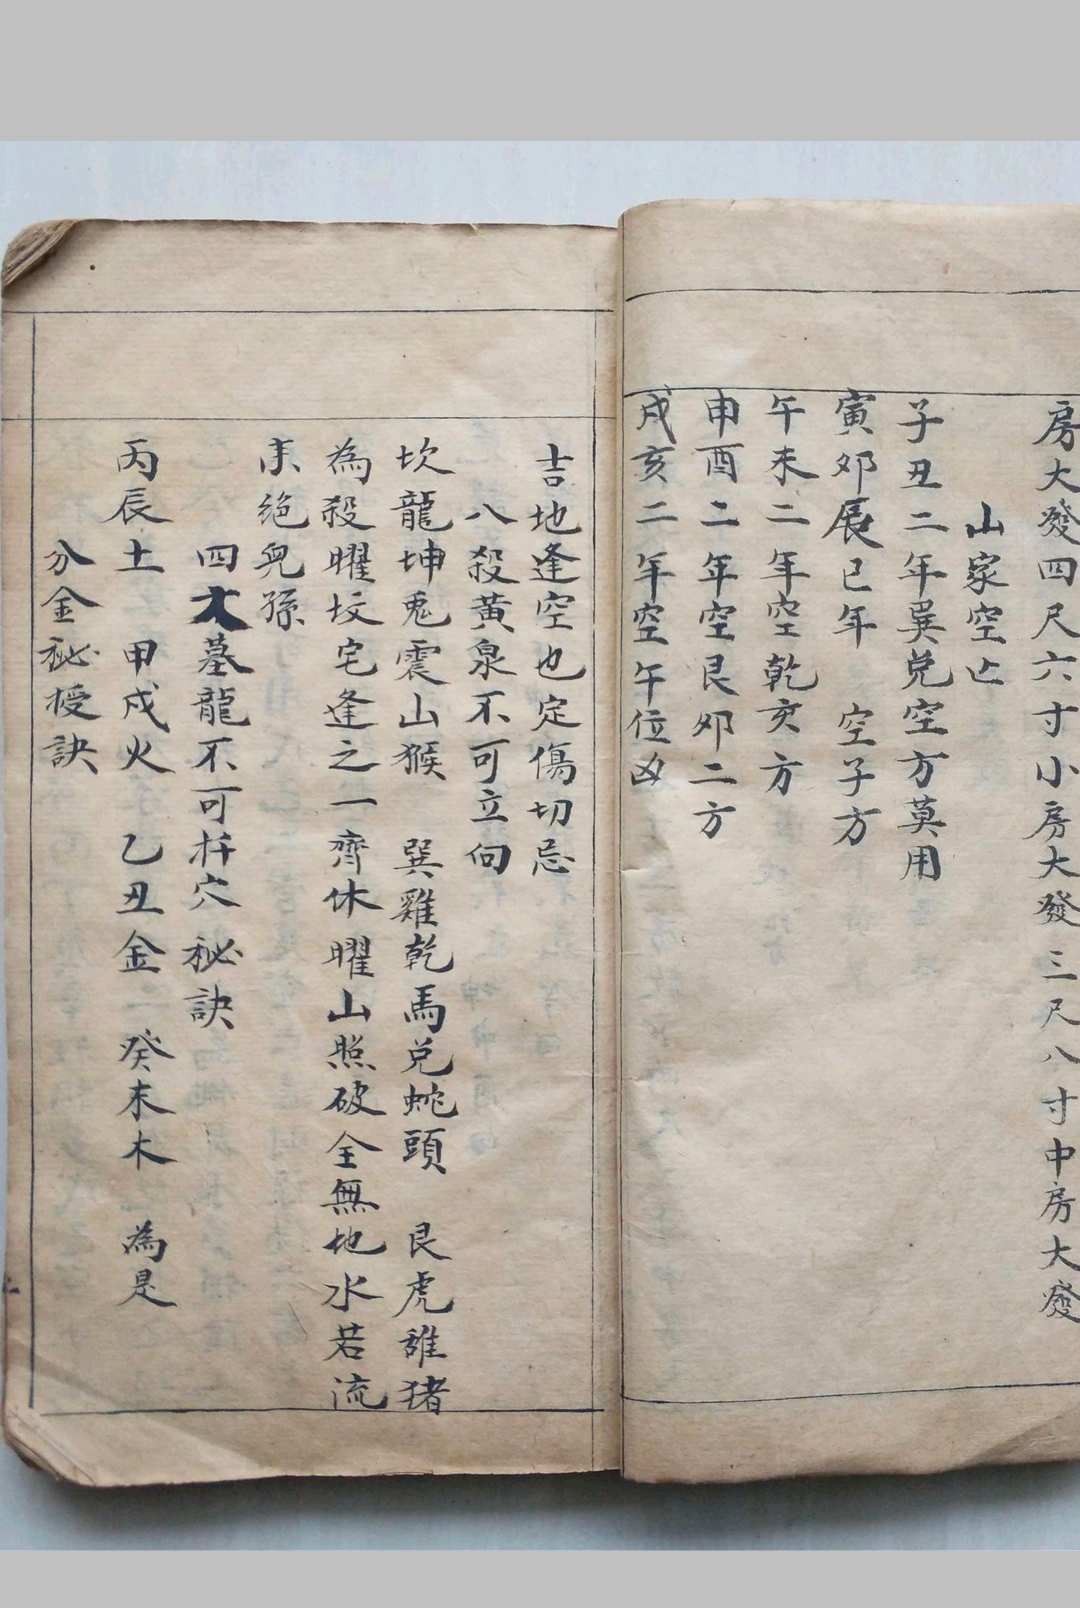 房大發四尺六寸小房大發三尺八寸中房大發
山家空亡
子丑二年巽兑空方莫用
寅卯辰巳年 空子方
午未二年空乾亥方
申酉二年空艮卯二方
戌亥二年空午位凶
吉地逢空也定傷切忌
八殺黃泉不可立向
坎龍坤兎震山猴 巽雞乾馬兑蛇頭 艮虎離猪
為殺曜坟宅逢之一齊休曜山照破全無地水若流
来絕兒孫
四大墓龍不可扦穴秘訣
丙辰土 甲戌火 乙丑金 癸未木 為是
分金秘授訣